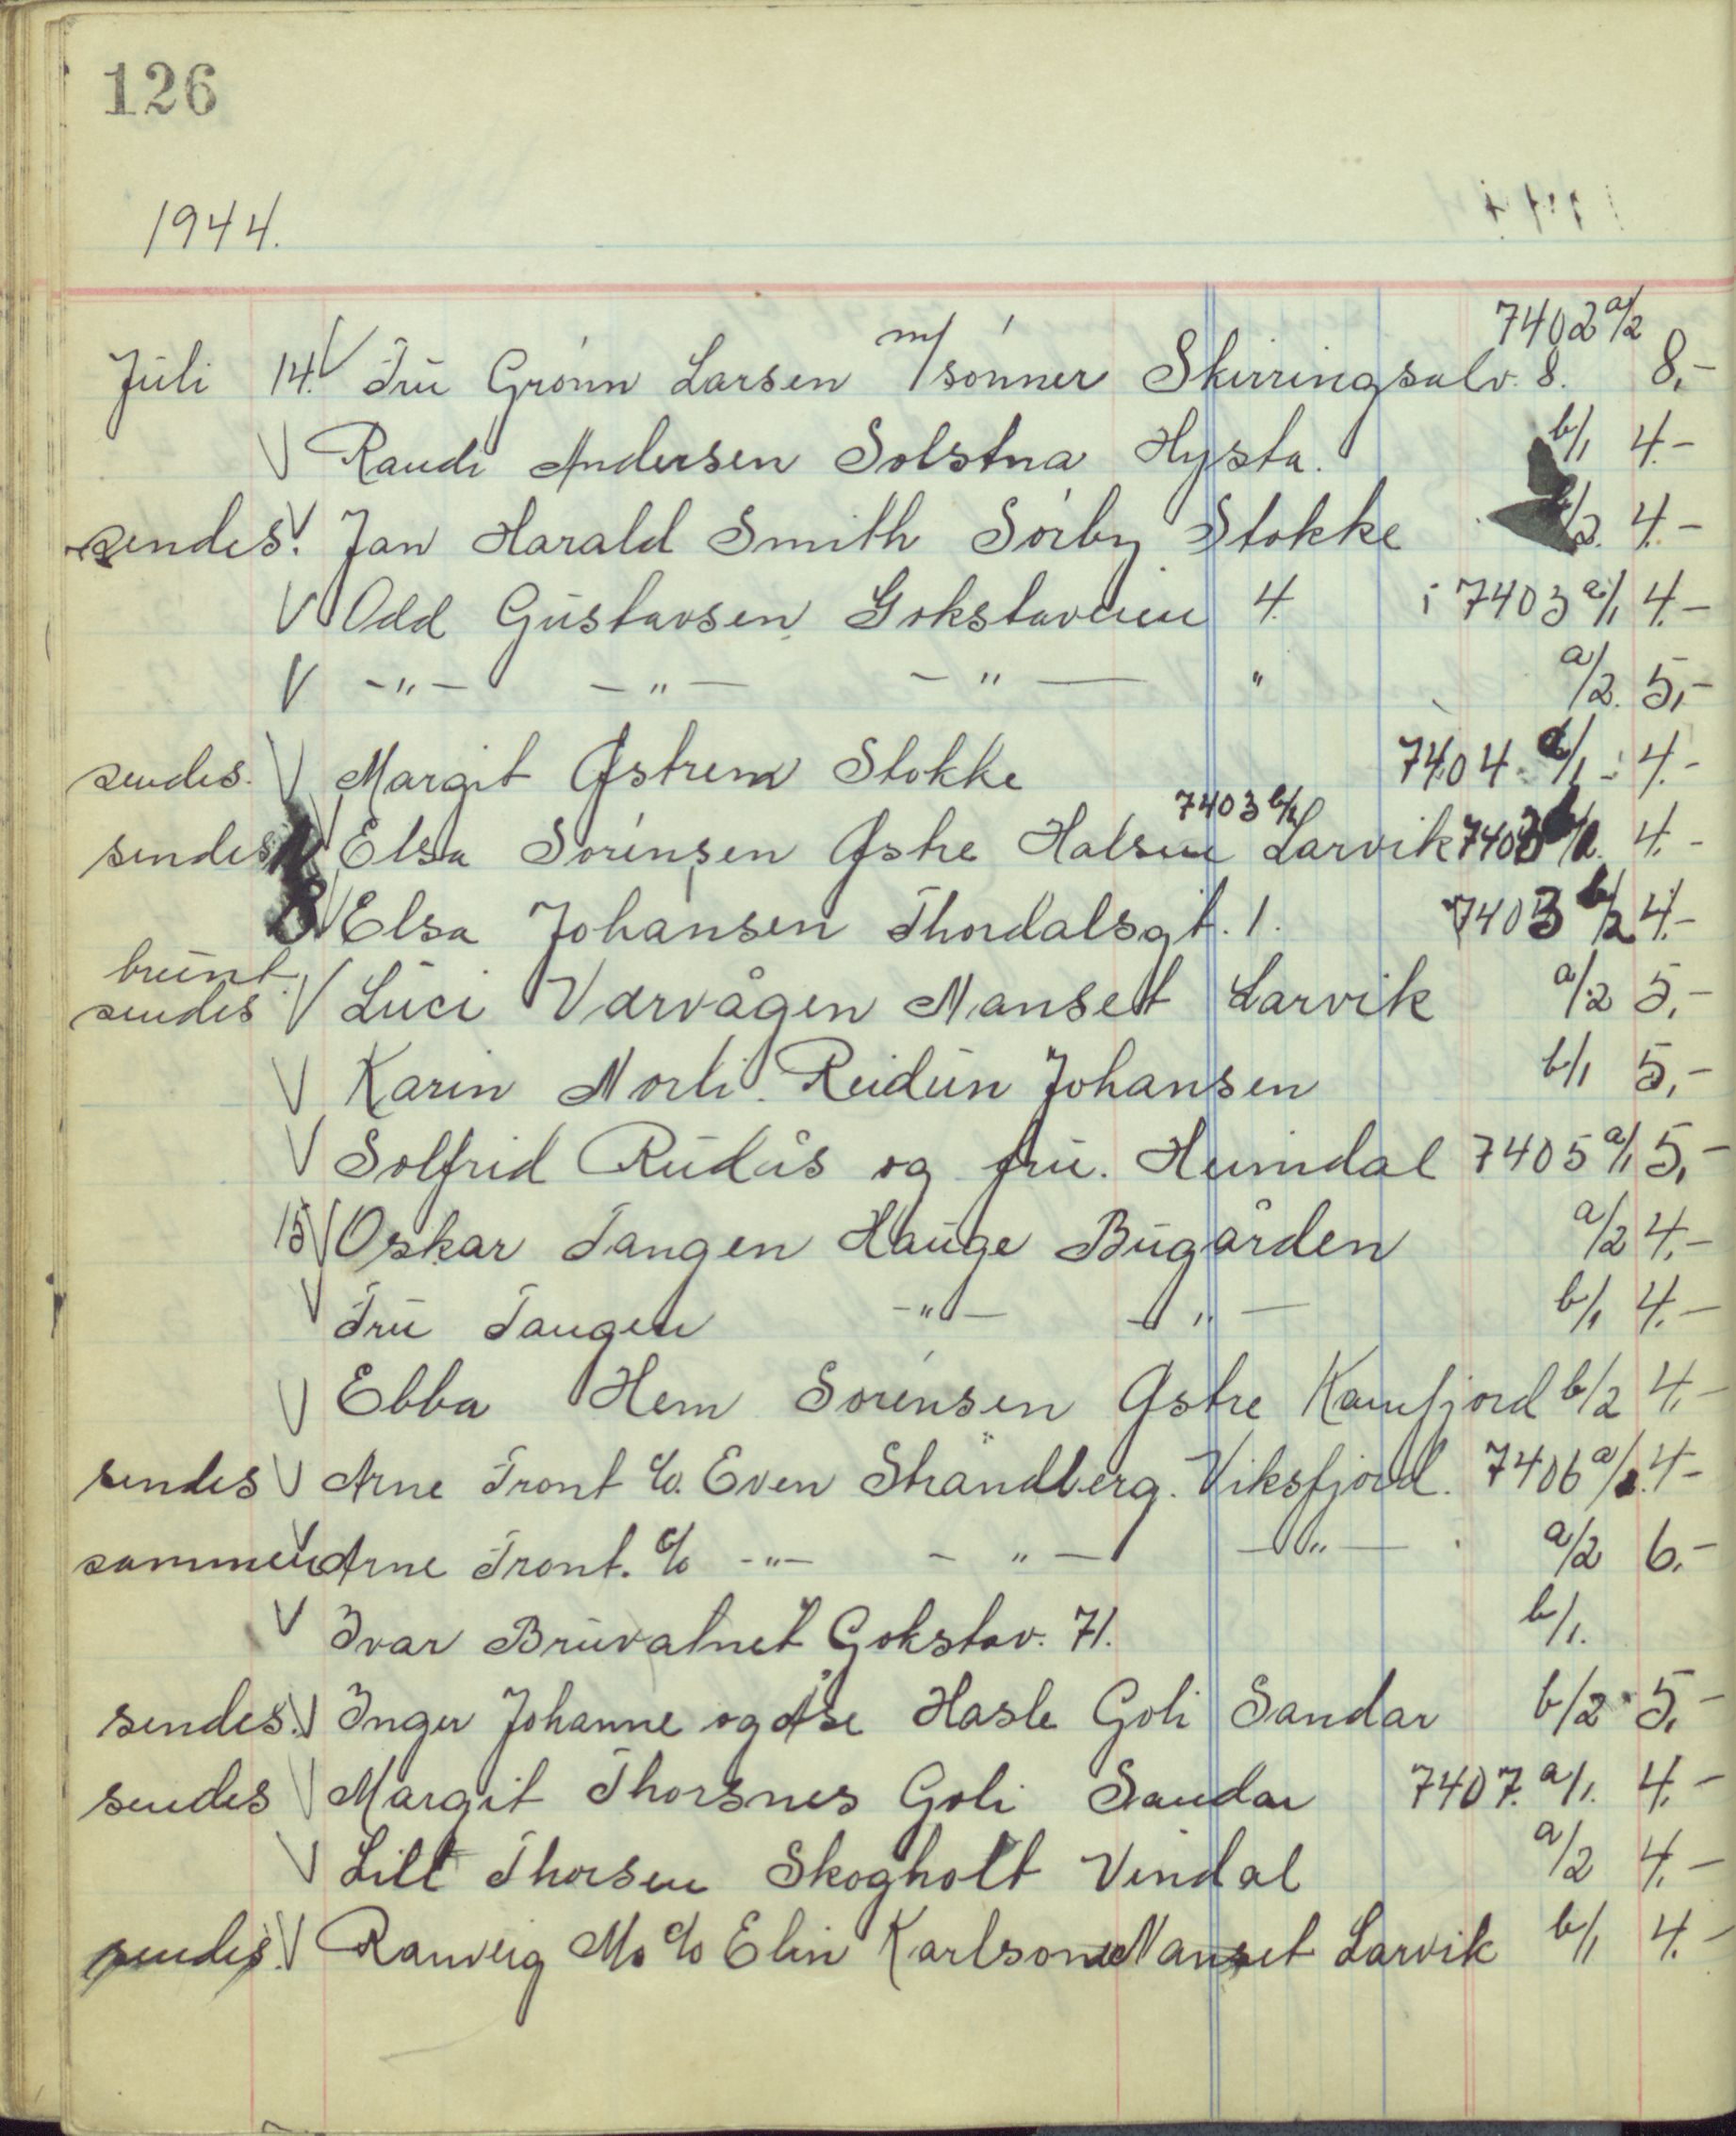 126
1944.
7402 a/2
Juli 14. V Fru Grønn Larsen m/sønner Skirringsalv. 8. 8,-
V Randi Andersen Solstua Hysta. b/1 4.-
sendes. V Jan Harald Smith Sörby Stokke b/2. 4.-
V Odd Gustavsen Gokstaveien 4. 7403 a/1 4.-
V -"- -"- -"- " a/2. 5,-
sendes. V Margit Østrem Stokke 7404 a/1 4.-
7403 b/1
sendes V Elsa Sörensen Østre Halsen Larvik 4.-
V Elsa Johansen Thordalsgt. 1. 7403 b/2 4.-
brunt.
sendes V Luci Varvågen Nanset Larvik a/2 5,-
V Karin Norli. Reidun Johansen b/1 5,-
V Solfrid Rudås og fru. Heimdal 7405 a/1 5,-
15 V Oskar Tangen Hauge Bugården a/2 4,-
V Fru Tangen -"- -"- b/1 4.-
V Ebba Hem Sörensen Østre Kamfjord b/2 4.-
sendes V Arne Tront c/o. Even Strandberg. Viksfjord. 7406 a/1. 4-
sammen V Arne Tront. c/o -"- -"- -"- a/2 6.-
V Ivar Bruvatnet Gokstav. 71. b/1.
sendes. V Inger Johanne og Åse Hasle Goli Sandar b/2 5,-
sendes V Margit Thorsnes Goli Sandar 7407. a/1. 4,-
V Lill Thorsen Skogholt Vindal a/2 4,-
sendes. V Ranveig Mo c/o Elin Karlson Nanset Larvik b/1 4.-